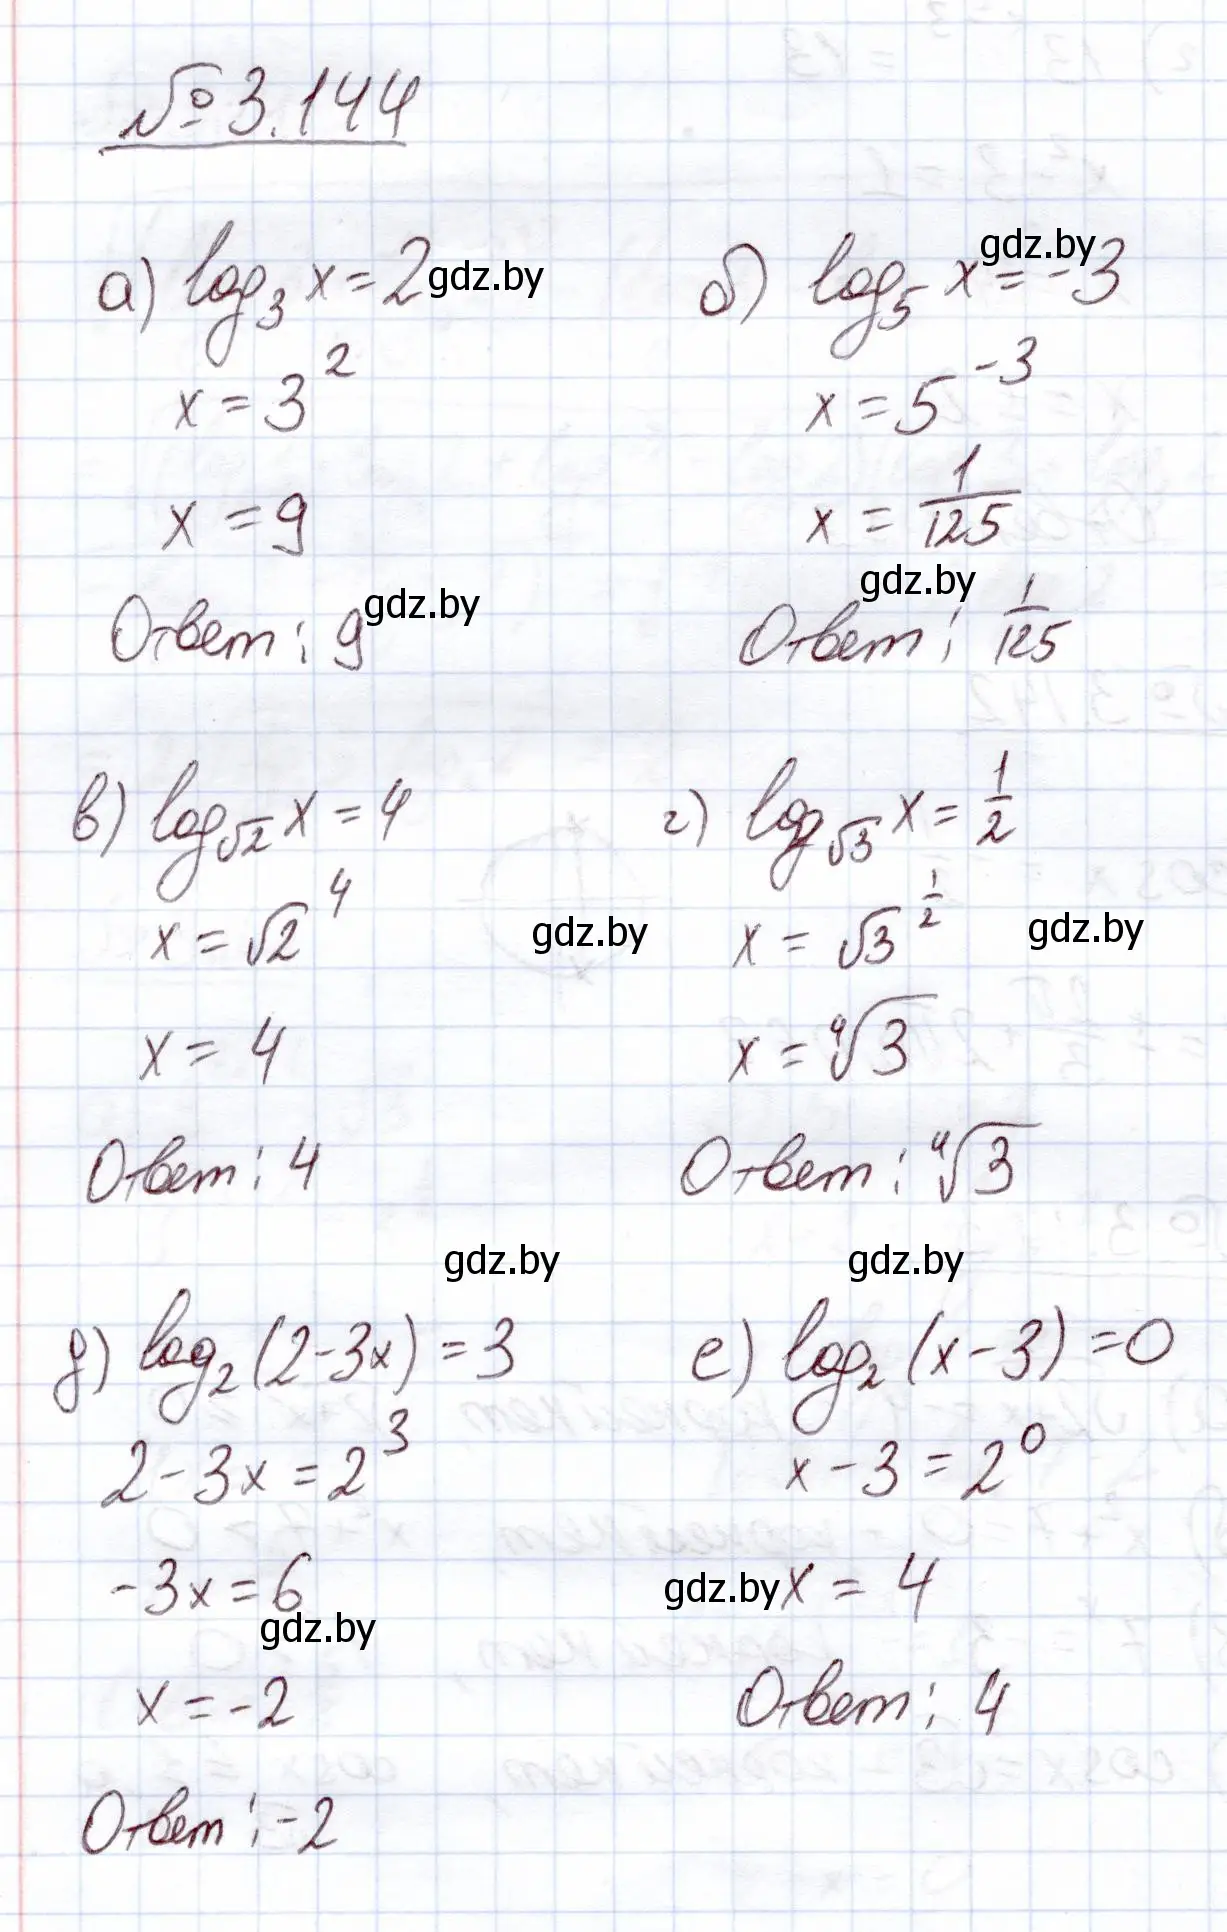 № 3.144
а) log₃ x = 2 gdz.by
x = 3²
x = 9
Ответ: 9 gdz.by
б) log₅ x = -3 gdz.by
x = 5⁻³
x = 1/125
gdz.by
Ответ: 1/125
в) log_√2 x = 4
x = √2⁴ gdz.by
x = 4
Ответ: 4
г) log_√3 x = 1/2
x = √3^(1/2) gdz.by
x = ⁴√3
Ответ: ⁴√3
gdz.by
gdz.by
д) log₂ (2-3x) = 3
2-3x = 2³
-3x = 6
gdz.by
x = -2
Ответ: -2
е) log₂ (x-3) = 0
x-3 = 2⁰
gdz.by x = 4
Ответ: 4